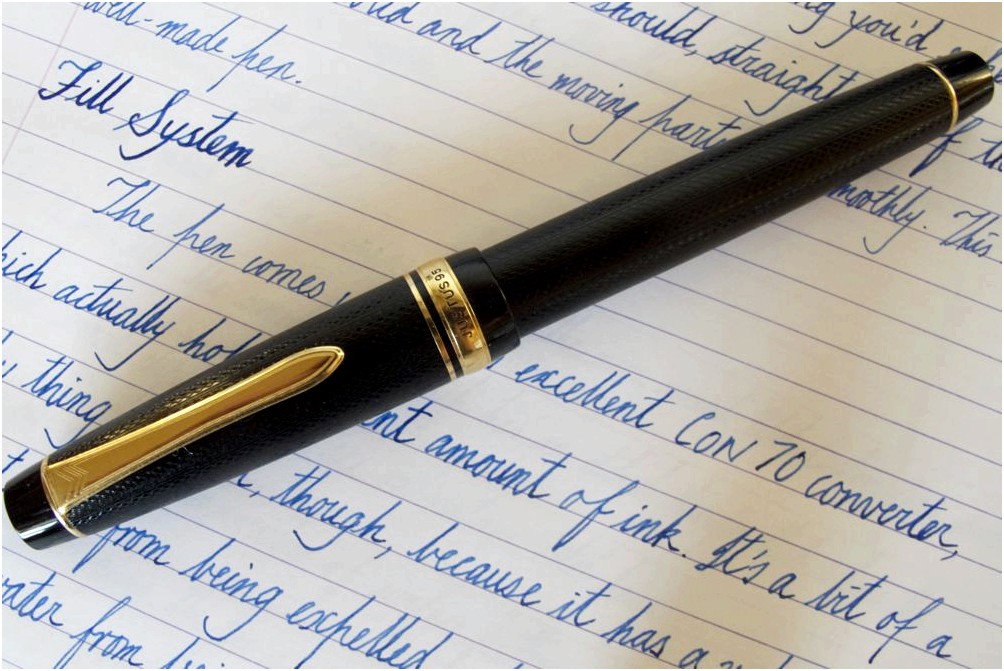 well-made pen.
and the moving parts
should, straight
you'd
smoothly. This
Fill System
The pen comes
which actually
excellent CON 70 converter,
thing
amount of ink. It's a bit of a
though, because it has a
from being expelled
from
JUSTUS95